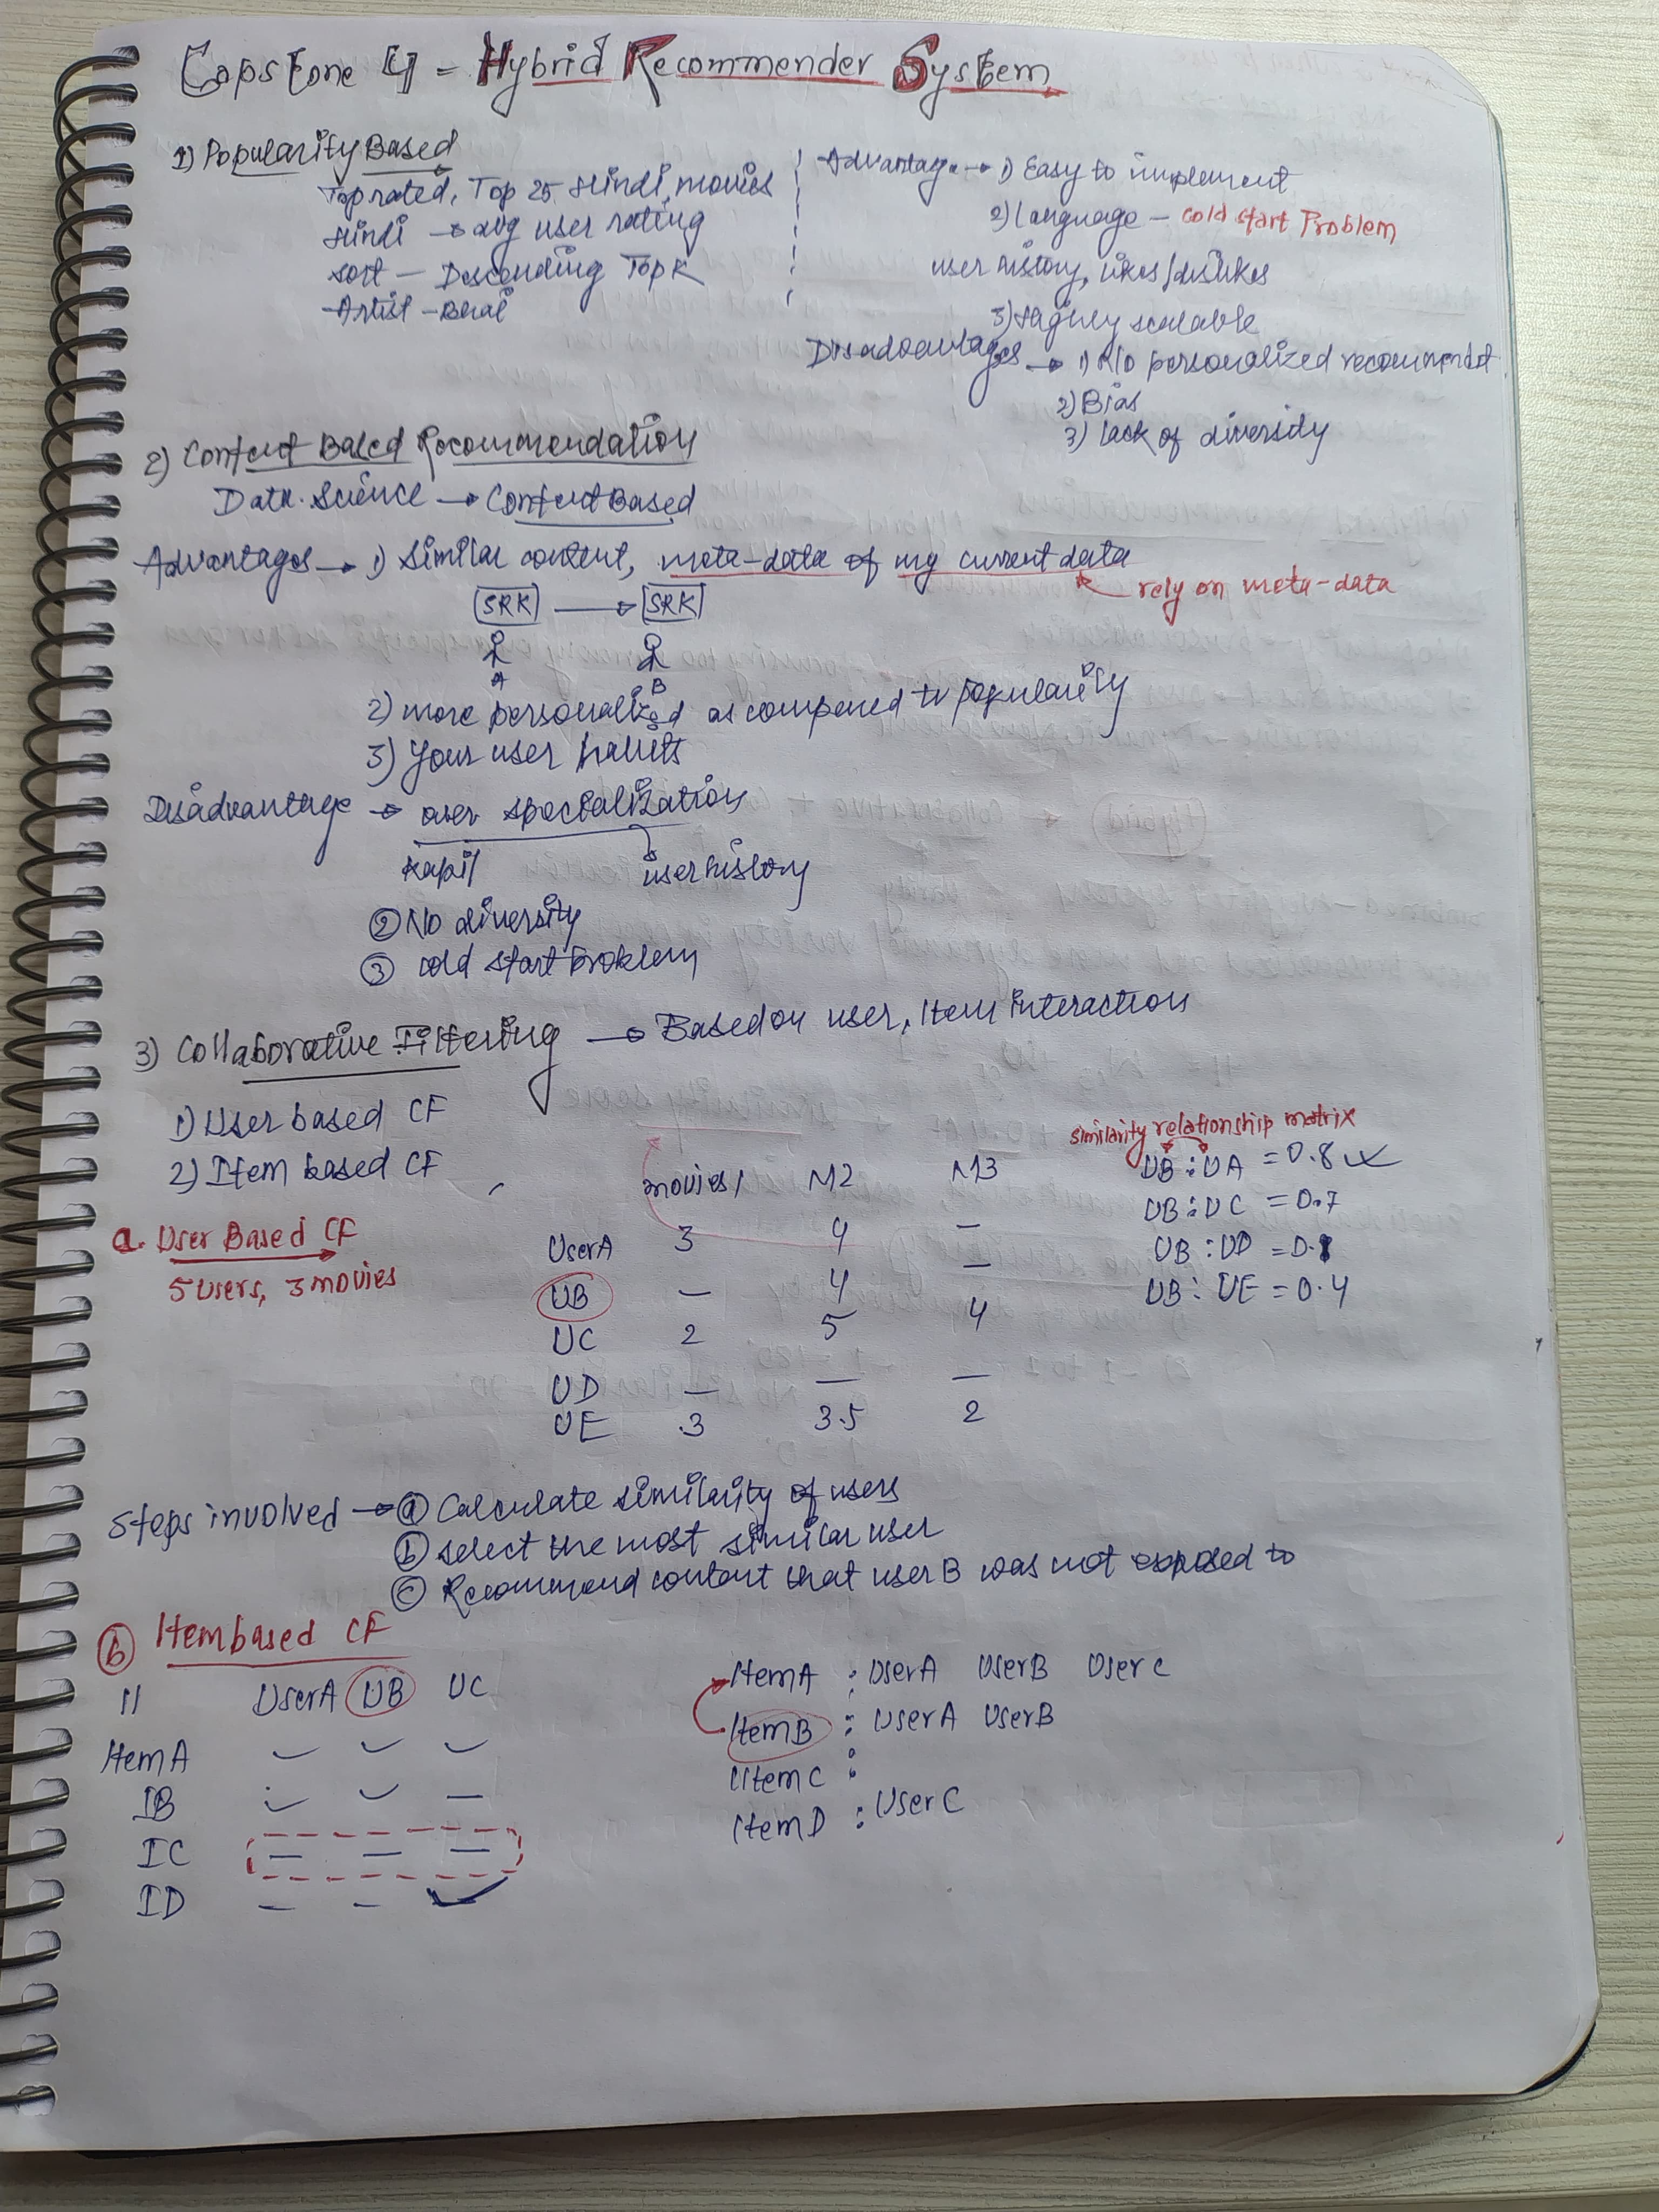 Capstone 4 - Hybrid Recommender System
1) Popularity Based
Top rated, Top 25 Hindi movies
Hindi → avg user rating
sort — Descending Top K
Artist -
Advantage → 1) Easy to implement
2) Language — cold start Problem
user history, likes/dislikes
3) Highly scalable
Disadvantages → 1) No personalized recommendat
2) Bias
3) lack of diversity
2) Content Based Recommendation
Data Science → Content Based
Advantages → 1) Similar content, meta-data of my current data
rely on meta-data
SRK → SRK
A B
2) more personalized as compared to popularity
3) Your user habits
Disadvantage → over specialization
Kapil user history
② No diversity
③ cold start Problem
3) Collaborative Filtering → Based on user, Item interaction
1) User based CF
2) Item based CF
a. User Based CF
5 users, 3 movies
movies1 M2 M3
User A 3 4 —
UB — 4 —
UC 2 5 4
UD — — —
UE 3 3.5 2
similarity relationship matrix
UB : UA = 0.8
UB : UC = 0.7
UB : UD = 0.1
UB : UE = 0.4
Steps involved → ⓐ Calculate similarity of users
ⓑ select the most similar user
ⓒ Recommend content that user B was not exposed to
ⓑ Item based CF
11 User A UB UC
Item A ✓ ✓ ✓
IB ✓ ✓ —
IC — — —
ID — — ✓
Item A : User A User B User C
Item B : User A User B
Item C :
Item D : User C